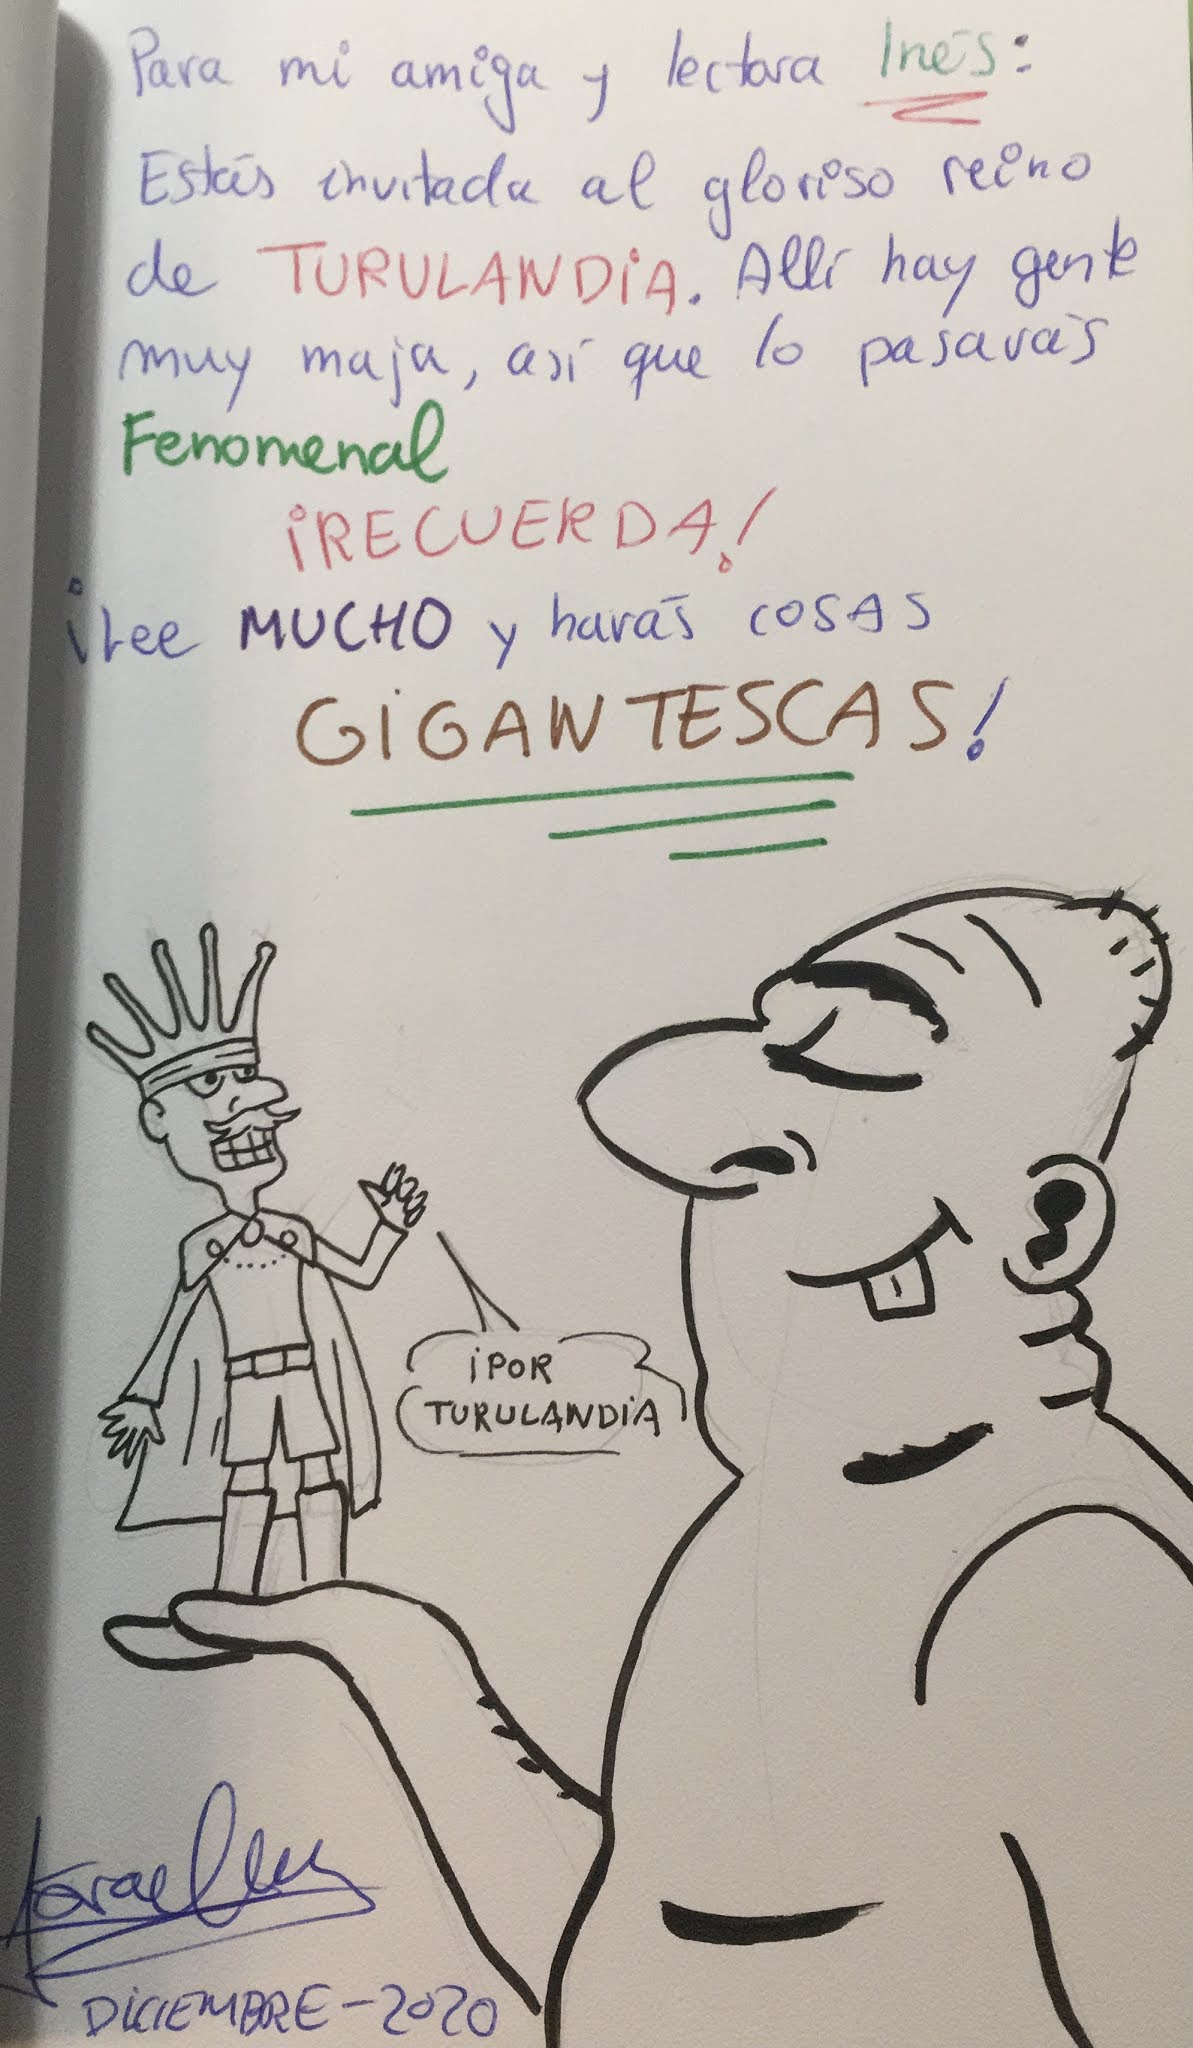 Para mi amiga y lectora Inés:
Estás invitada al gloriso reino
de TURULANDIA. Allí hay gente
muy maja, así que lo pasarás
Fenomenal
¡RECUERDA!
¡Lee MUCHO y harás COSAS
GIGANTESCAS!
¡POR
TURULANDIA
DICIEMBRE-2020